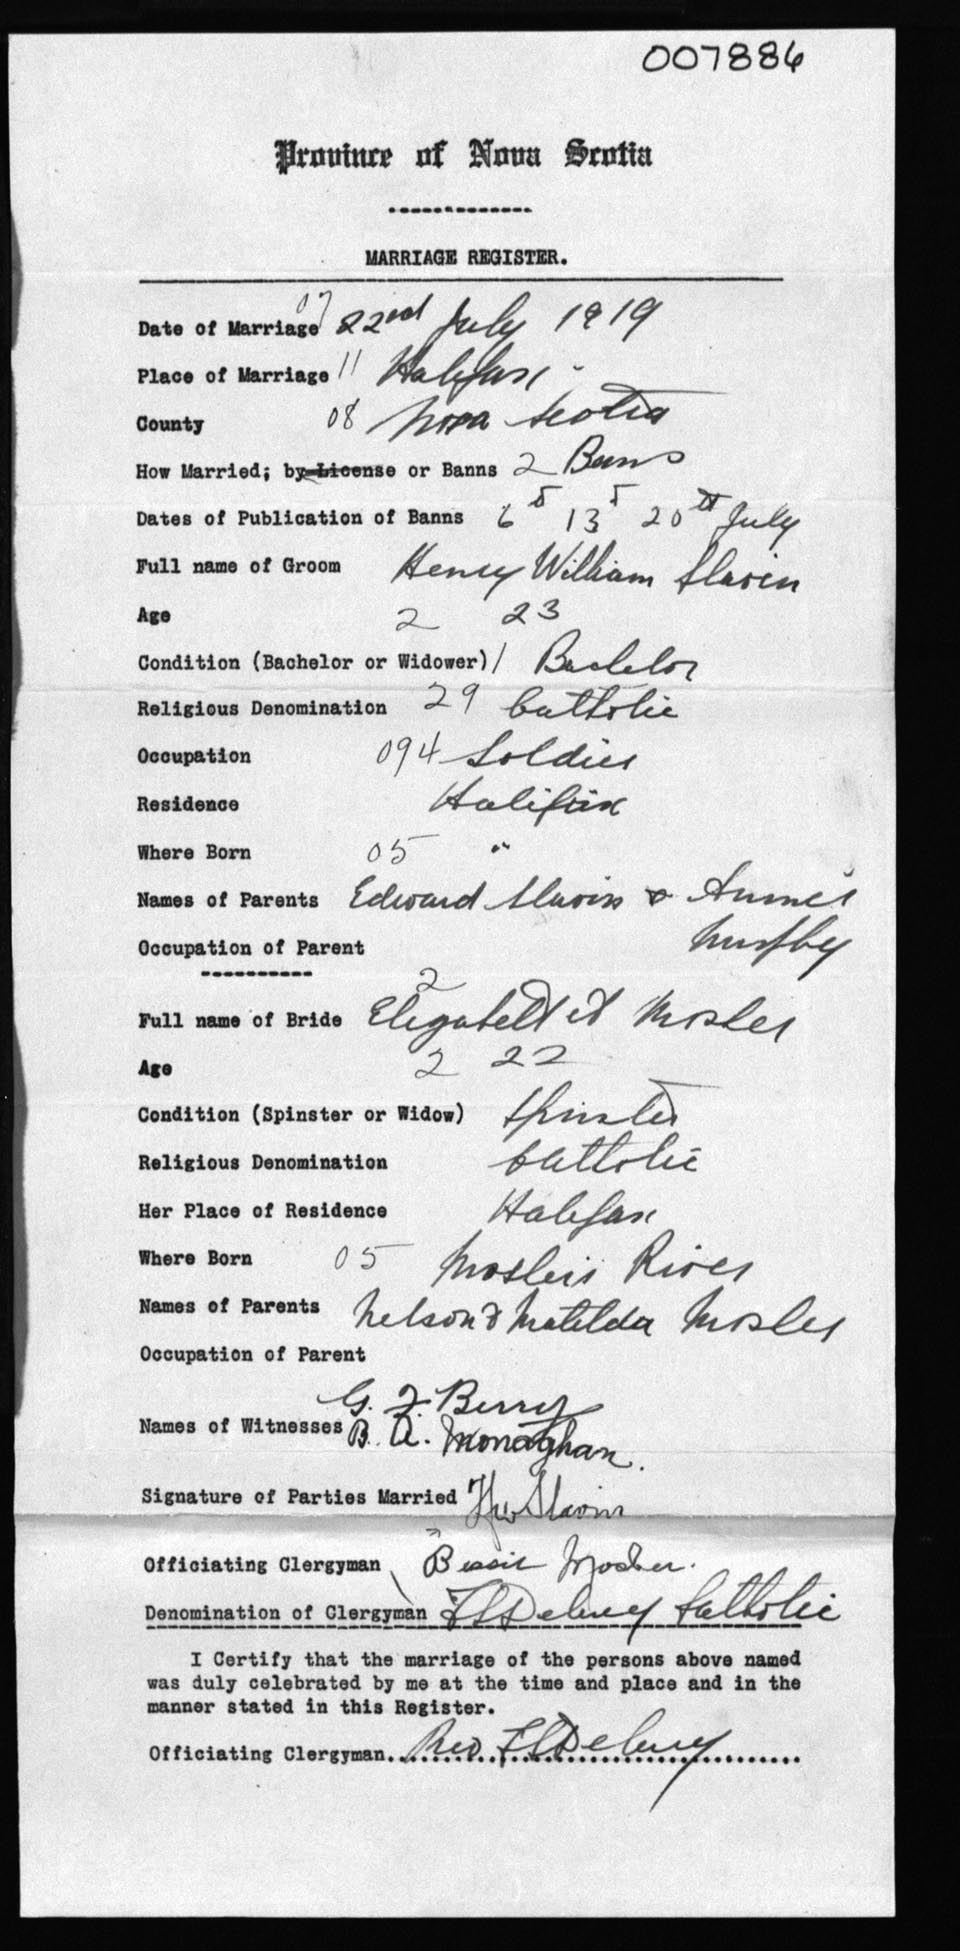 007886
Province of Nova Scotia
MARRIAGE REGISTER.
Date of Marriage 07 22nd July 1919
Place of Marriage 11 Halifax
County 08 Nova Scotia
How Married; by License or Banns 2 Banns
Dates of Publication of Banns 6 13 20th July
Full name of Groom Henry William Slavin
Age 2 23
Condition (Bachelor or Widower) 1 Bachelor
Religious Denomination 29 Catholic
Occupation 094 Soldier
Residence Halifax
Where Born 05 "
Names of Parents Edward Slavin & Annie
Murphy
Occupation of Parent
2
Full name of Bride Elizabeth Mosher
Age 2 22
Condition (Spinster or Widow) Spinster
Religious Denomination Catholic
Her Place of Residence Halifax
Where Born 05 Moshers River
Names of Parents Nelson & Matilda Mosher
Occupation of Parent
G. F Berry
Names of Witnesses B. A. Monaghan.
Signature of Parties Married HW Slavin
Officiating Clergyman Bessie Mosher.
Denomination of Clergyman Catholic
I Certify that the marriage of the persons above named
was duly celebrated by me at the time and place and in the
manner stated in this Register.
Officiating Clergyman. Rev